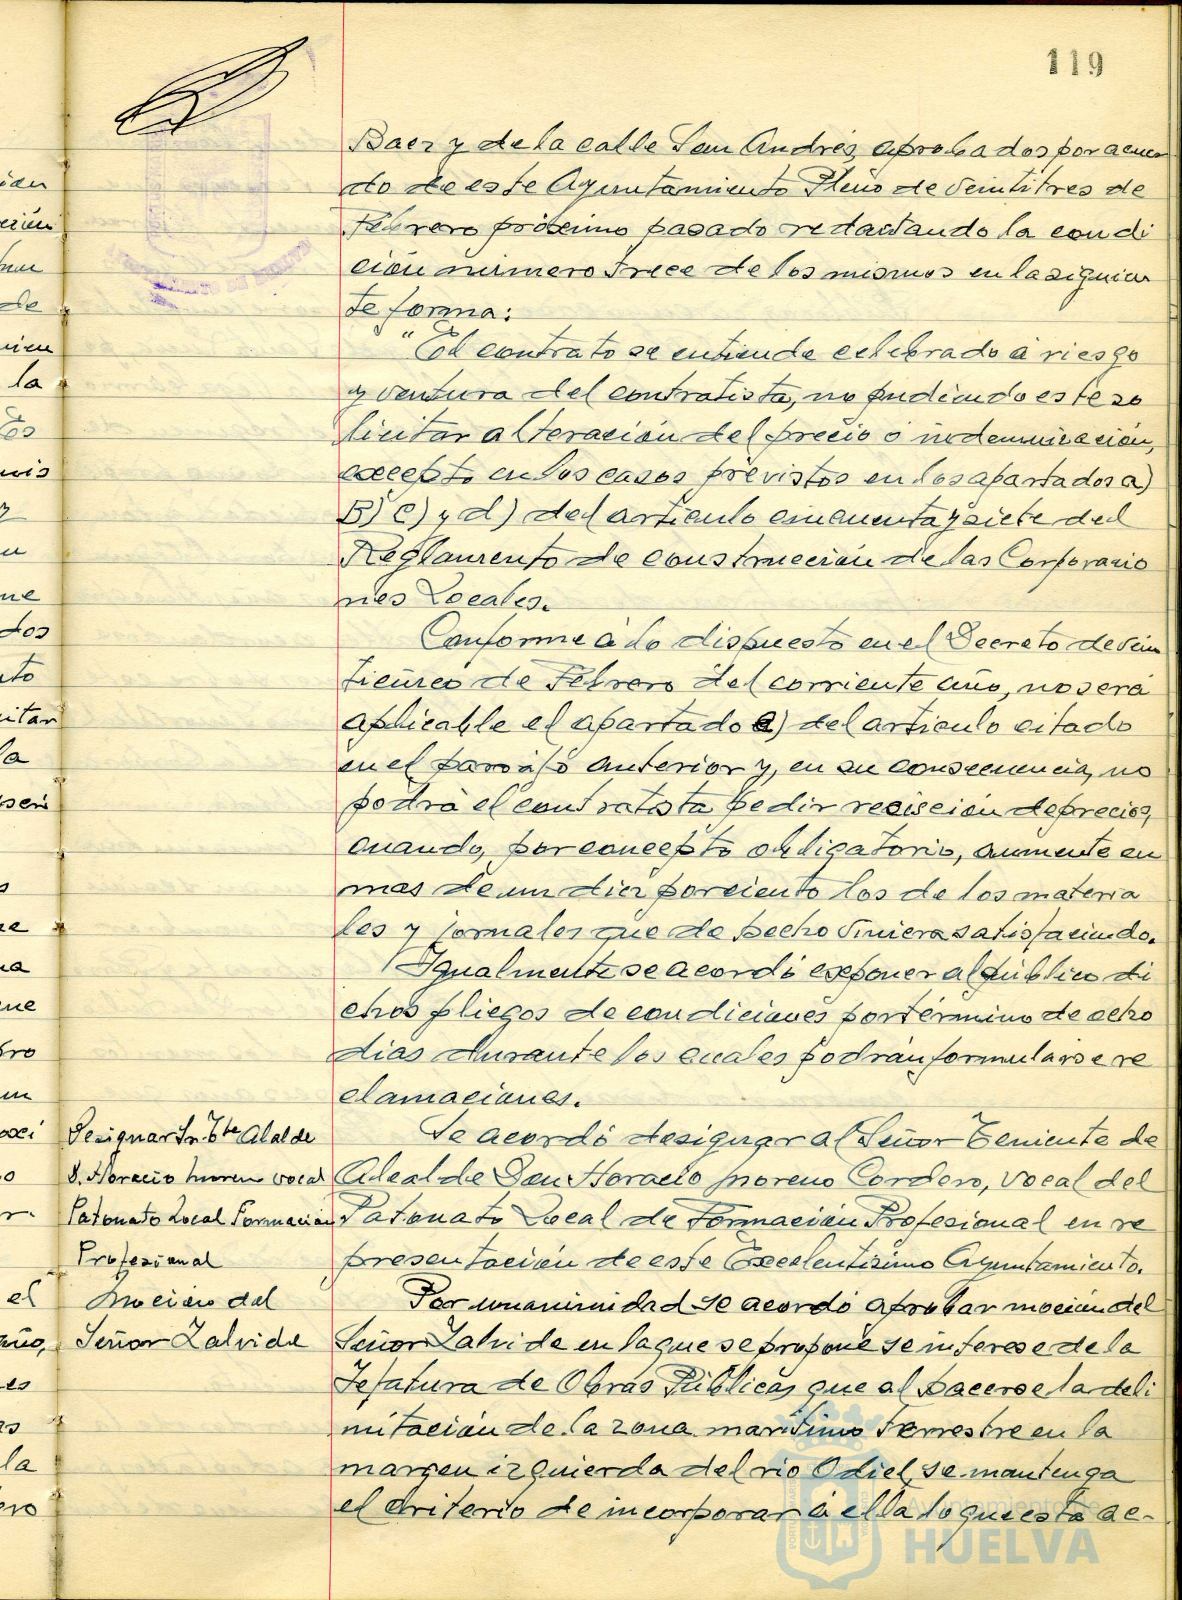 119
Baez y de la calle San Andrés, aprobados por acuer
do de este Ayuntamiento Pleno de veintitres de
Febrero próximo pasado redactando la condi
ción número trece de los mismos en la siguien
te forma:
"El contrato se entiende celebrado á riesgo
y ventura del contratista, no pudiendo este so
licitar alteración del precio ó indemnización,
excepto en los casos previstos en los apartados a)
B) C) y d) del articulo cincuenta y siete del
Reglamento de construcción de las Corporacio
nes Locales.
Conforme á lo dispuesto en el Decreto de vein
ticinco de Febrero del corriente año, no será
aplicable el apartado a) del articulo citado
en el parrafo anterior y, en su consecuencia, no
podrá el contratista pedir reciseión de precios,
cuando, por concepto obligatorio, aumente en
mas de un diez por ciento los de los materia
les y jornales que de hecho viniera satisfaciendo.
Igualmente se acordó exponer al público di
chos pliegos de condiciones por término de ocho
dias durante los cuales podrán formularse re
clamaciones.
Designar Sr. Tte Alcalde
D. Horacio Moreno vocal
Patonato Local Formación
Profesional
Se acordó designar al Señor Teniente de
Alcalde Don Horacio Moreno Cordero, vocal del
Patonato Local de Formación Profesional en re
presentación de este Excelentisimo Ayuntamiento.
Moción del
Señor Zalvide
Por unanimidad se acordó aprobar moción del
Señor Zalvide en la que se propone se interese de la
Jefatura de Obras Públicas que al hacerse la deli
mitación de la zona maritimo terrestre en la
margen izquierda del rio Odiel, se mantenga
el criterio de incorporar á ella lo que está ac-
Ayuntamiento de
HUELVA